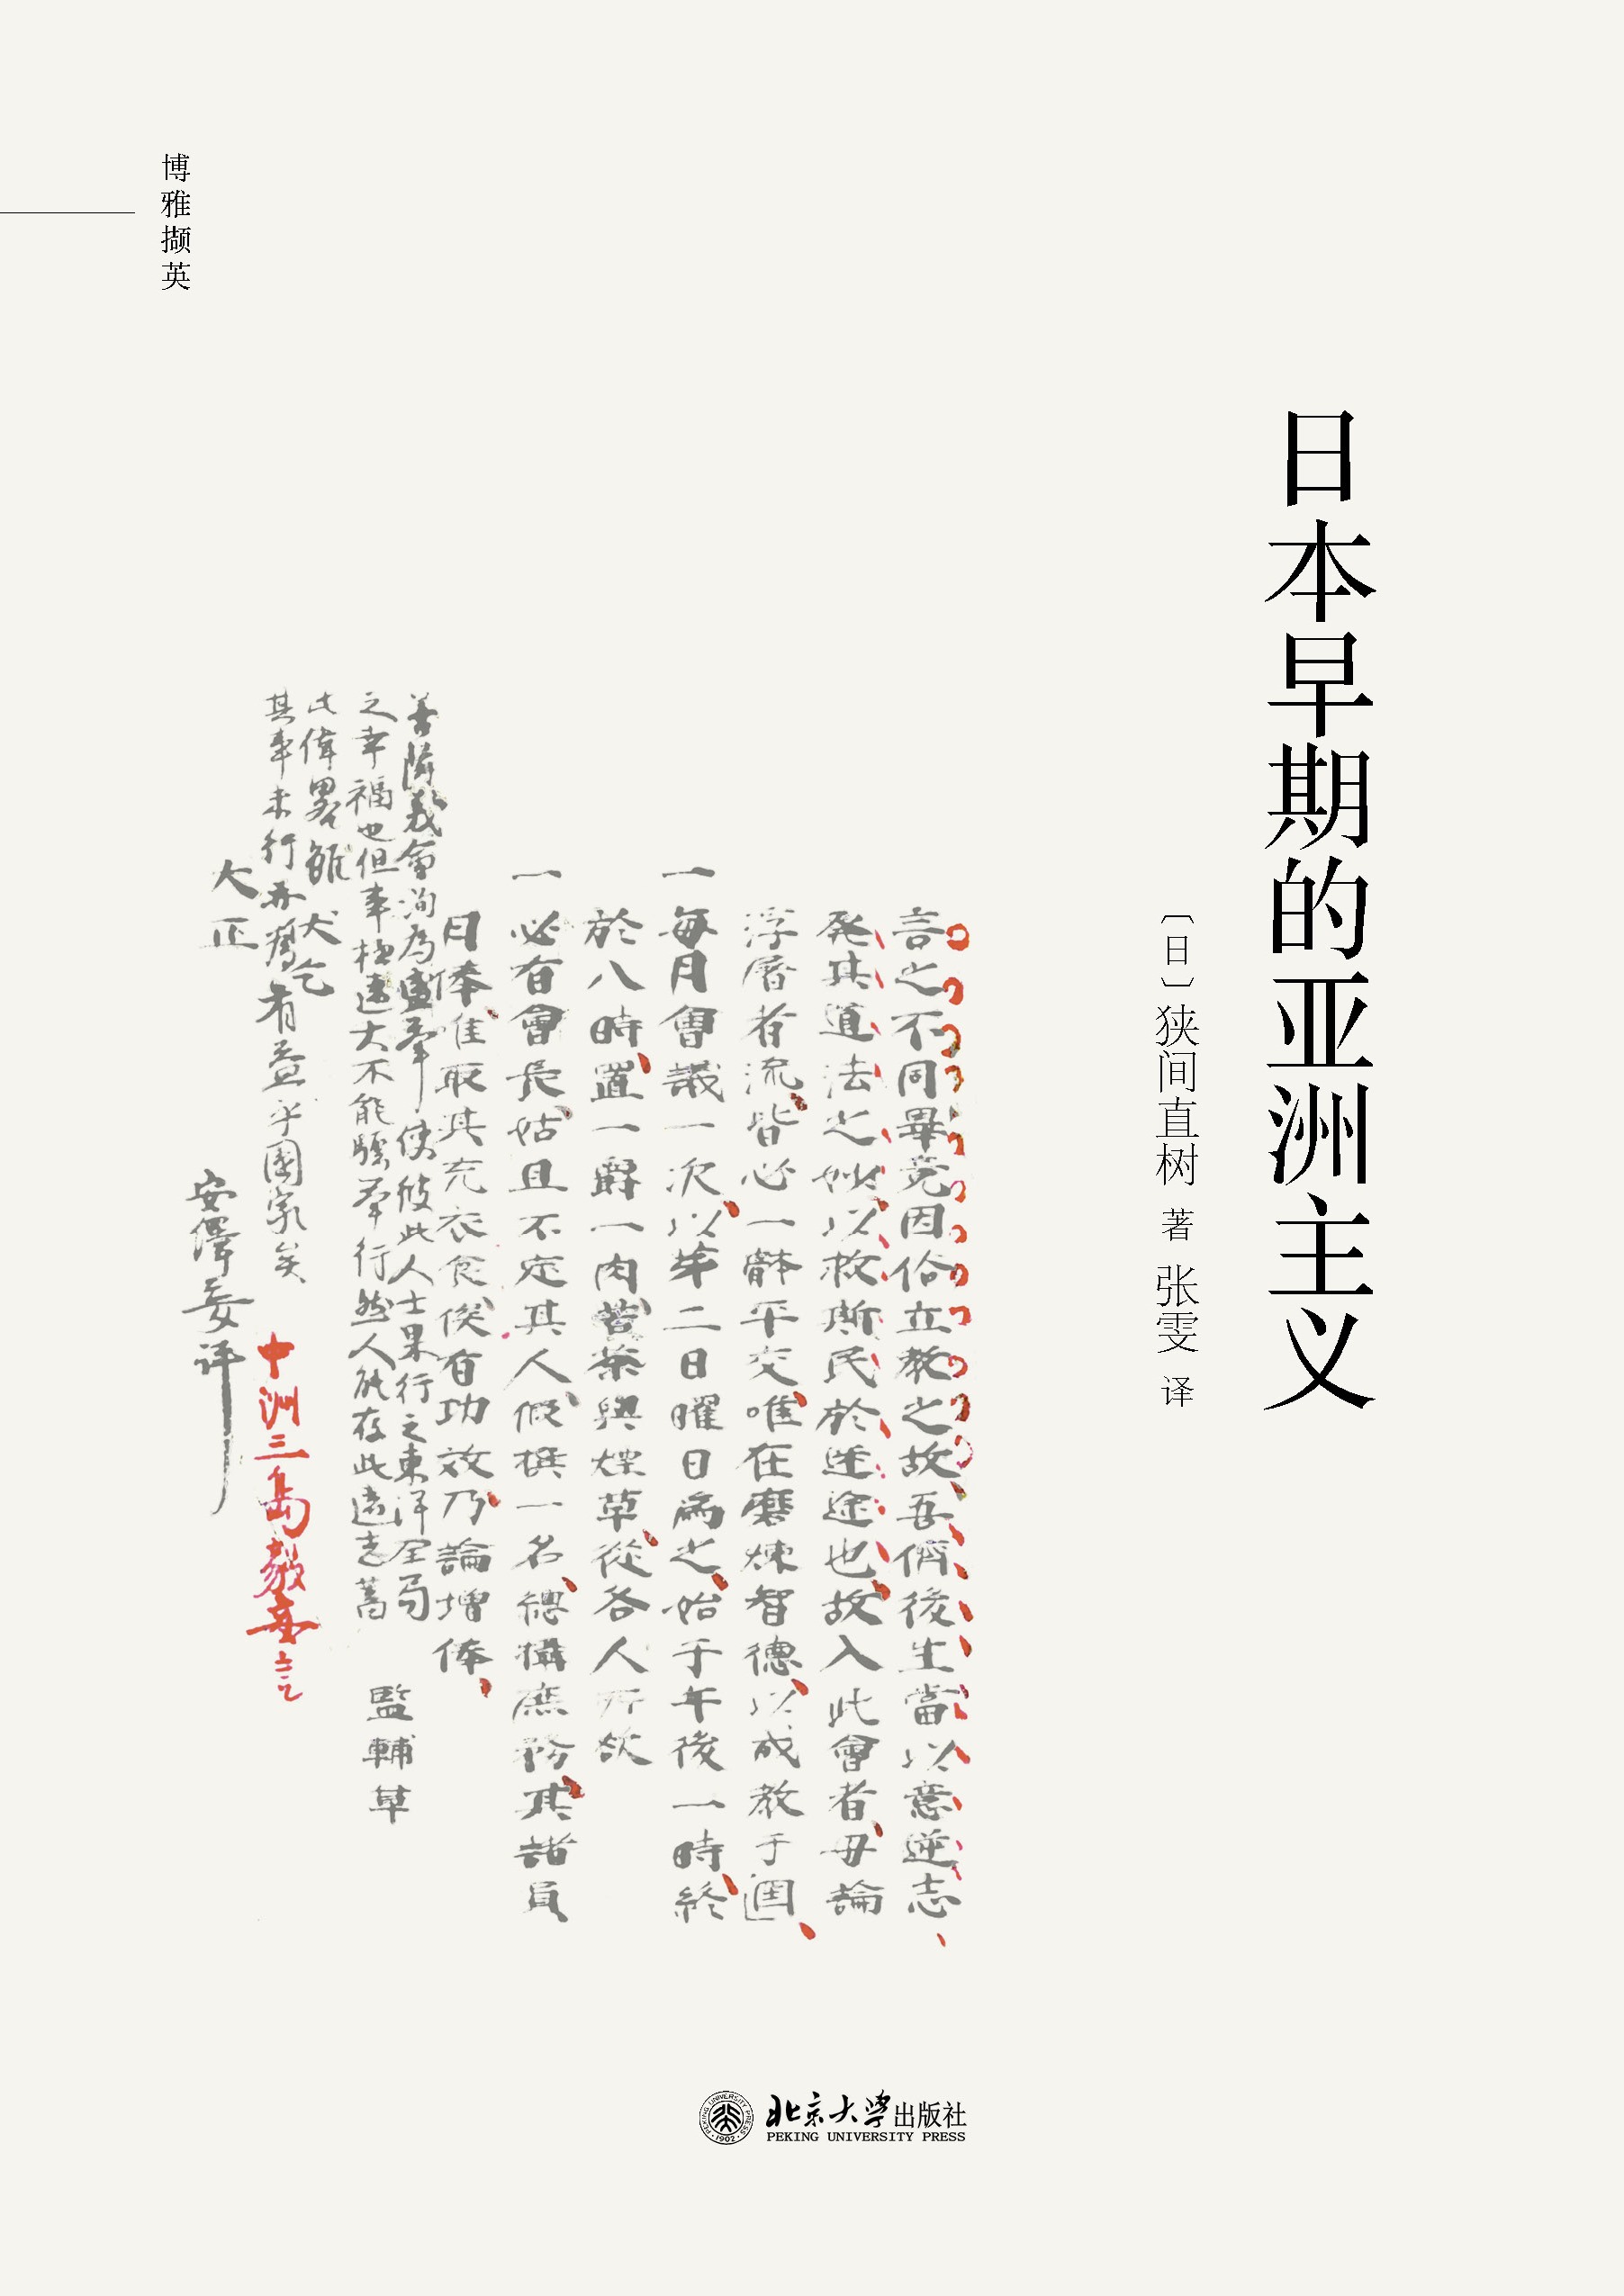 博雅撷英
日本早期的亚洲主义
〔日〕狭间直树 著 张雯 译
言之不同畢竟因俗立教之故吾儕後生當以意逆志
発其道法之妙以救斯民於迷途也故入此會者毋論
浮屠者流皆必一體平交唯在磨煉智德以成教于國
一每月會議一次以苐二日曜日為之始于午後一時終
於八時置一爵一肉苦茶與煙草從各人所欲
一必有會長姑且不定其人假撰一名總攝庶務其諸員
日俸唯取其充衣食俟有功效乃論增俸
監輔草
善隣義會洵為盛举使彼此人士果行之東洋全局
之幸福也但事極遠大不能驟举行然人能存此遠志蓄
此偉畧雖
其事未行亦為有益乎國家矣
中洲三島毅妄言
犬乞
大正
安繹妄评
北京大学出版社
PEKING UNIVERSITY PRESS
PEKING UNIVERSITY PRESS
1902